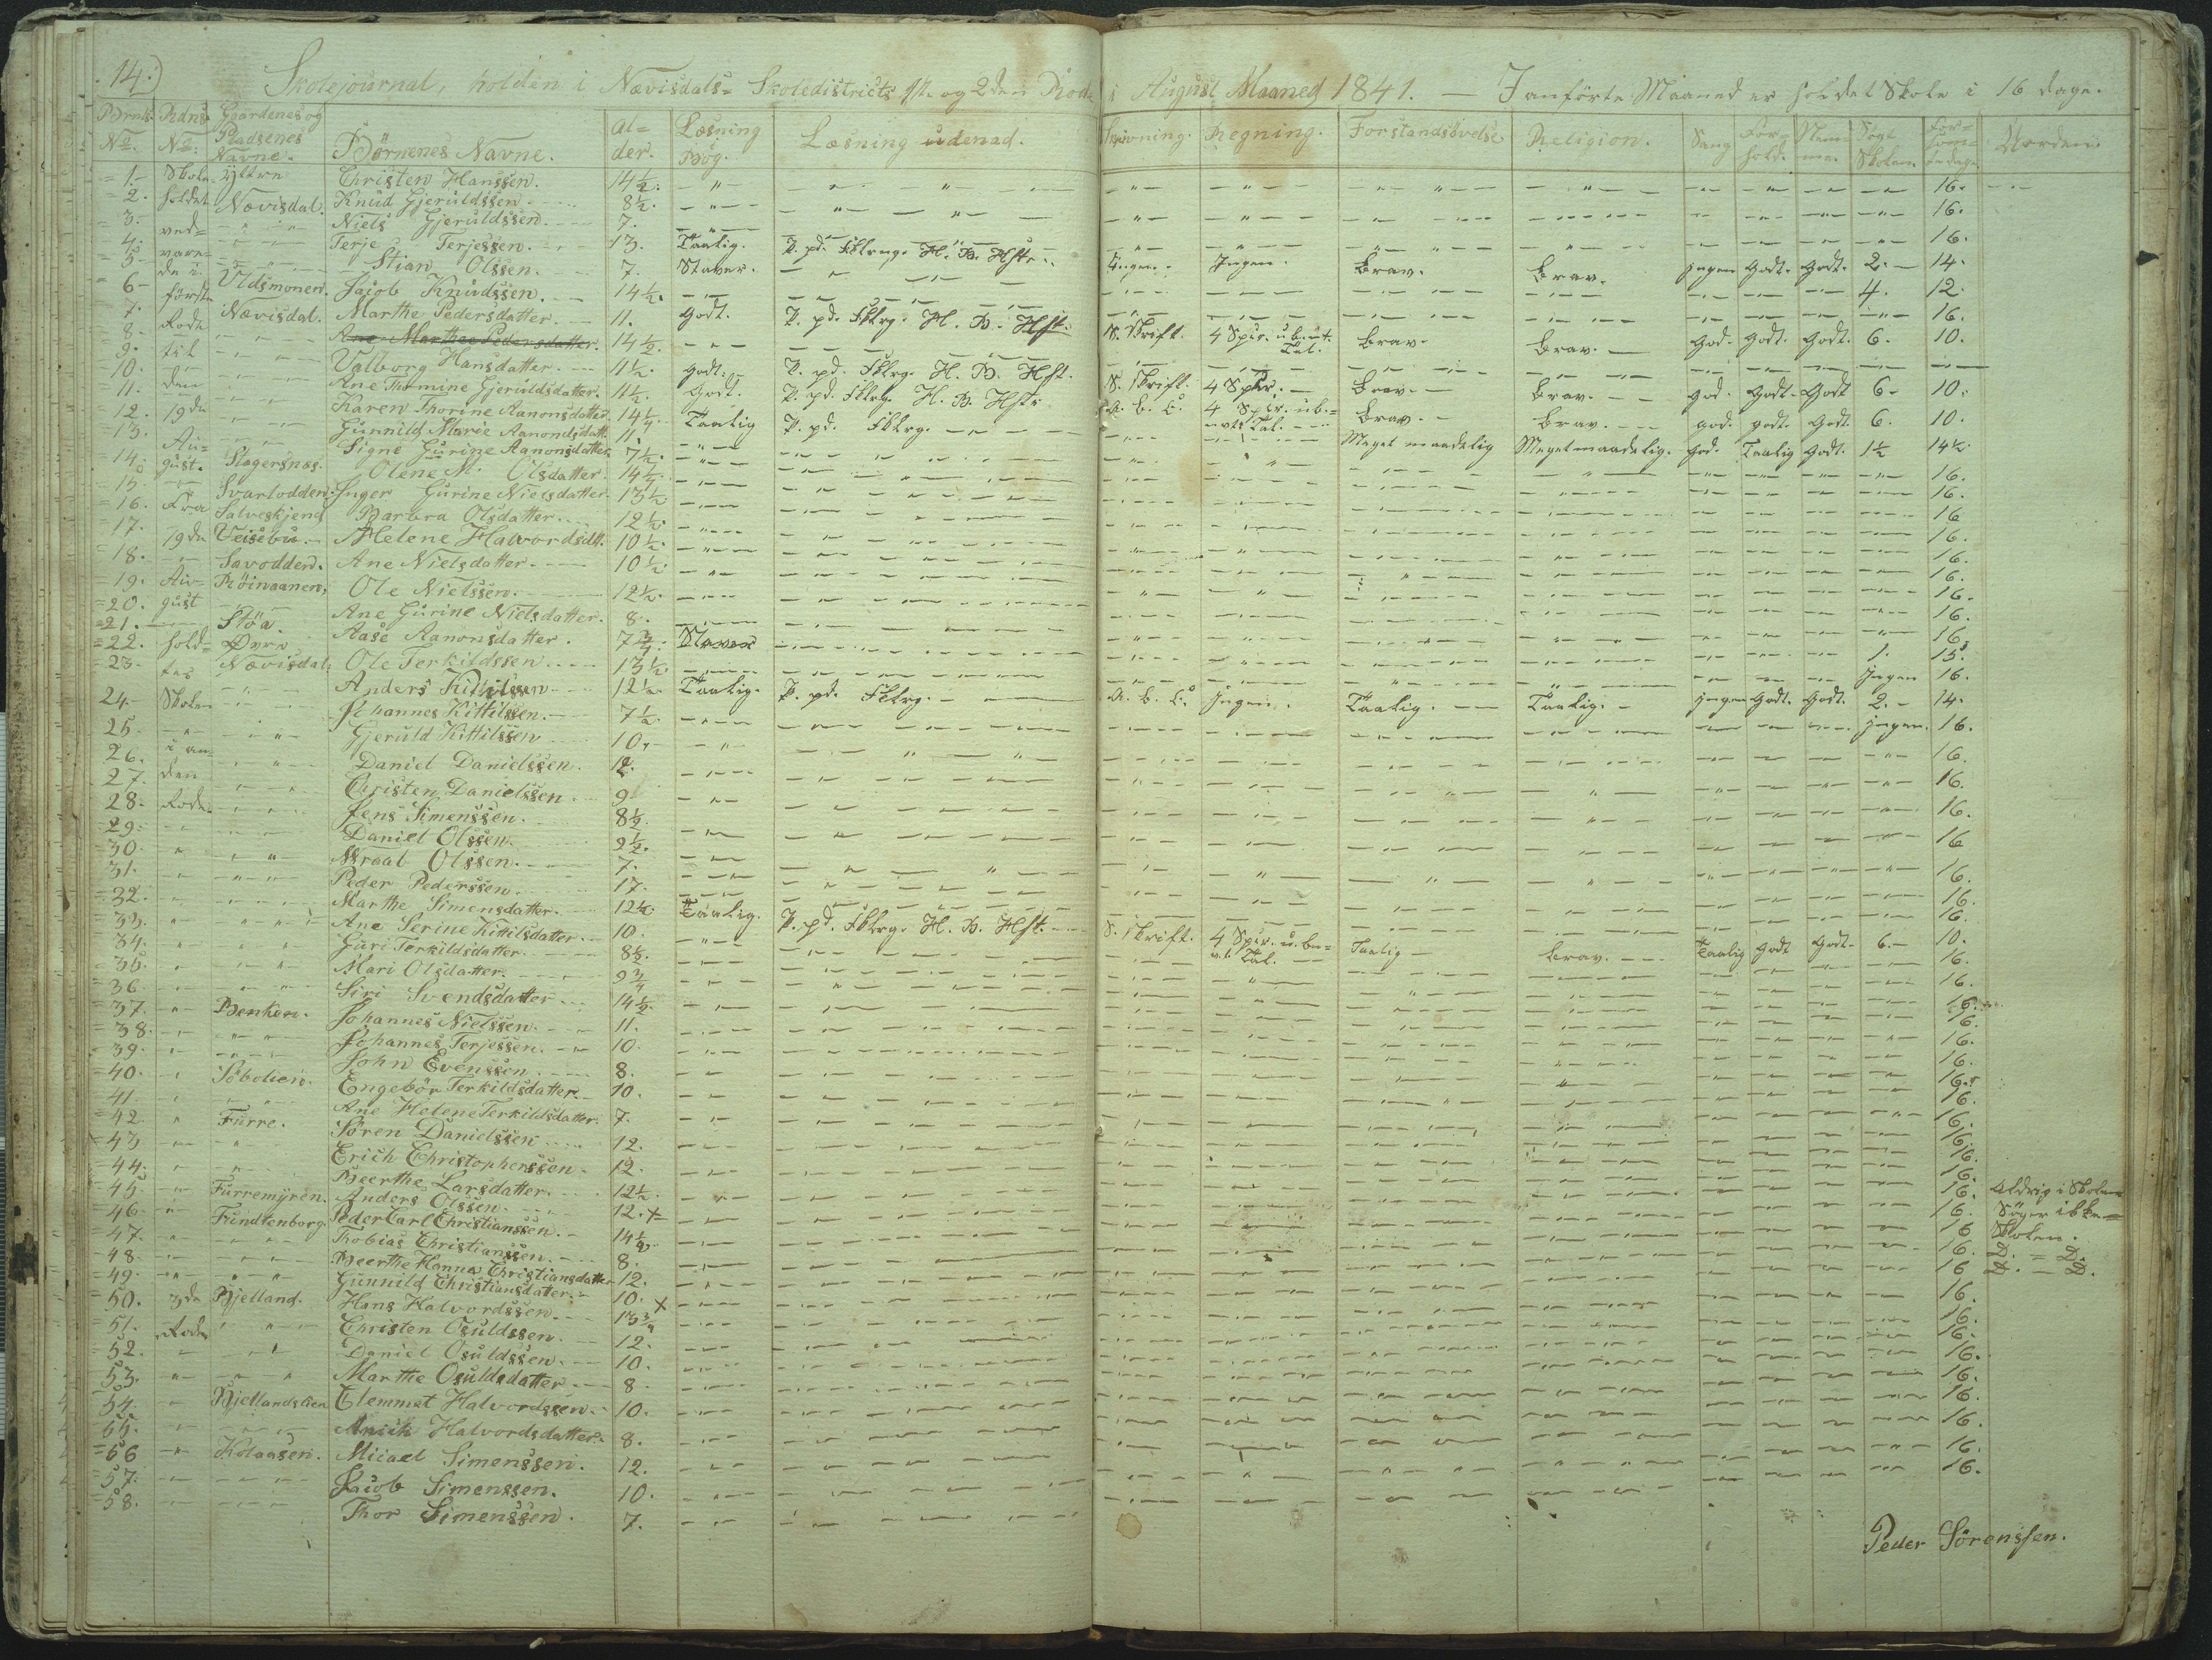 14.) Skolejournal, holden i Nævisdals- Skoledistricts 1ste og 2den Rode i August Maaned 1841. — I anførte Maaned er holdet Skole i 16 dage.
Børnts. No. Rdns No. Gaardenes og Pladsenes Navne. Börnenes Navne. Alder. Læsning i Bog. Læsning udenad. Skrivning. Regning. Forstandsövelse Religion. Sang Forhold. Søgt Skolen. Forsømte dage.
1. Skole Christen Hanssen. 14½. 16.
2. holdet Nævisdal. Knud Gjeruldssen 8½. 16.
3. ved- Niels Gjeruldssen. 7. 16.
4. vare- Terje Terjessen. 13. Taalig. P. pd. H. B. Hst. Ingen. Ingen. brav. brav. ingen godt. godt. 2. 14.
5. de i Stian Olssen. 7. Staver. 4. 12.
6. første Uldsmonen. Jacob Knudssen. 14½. 16.
7. Rode Nævisdal. Marthe Pedersdatter. 11. godt. P. pd. Fklrg. H. B. Hst. S. Skrift. 4 Spec. ub. Tal. brav. brav. god. godt. godt. 6. 10.
8. til Ane Marthea Pedersdatter. 14½.
9. Valborg Hansdatter. 11½. godt. P. pd. Fklrg. H. B. Hst. S. Skrift. 4 Spec. brav. brav. god. godt. godt 6. 10.
10. den Ane Thomine Gjeruldsdatter. 11½. godt. P. pd. Fklrg. H. B. Hst. a. b. c. 4 Spec. ub. Tal. brav. brav. god. godt. godt. 6. 10.
11. Karen Thorine Aanonsdatter. 14¼. Taalig P. pd. Fklrg. Meget maadelig Meget maadelig. god. Taalig godt. 1½ 14½
12. 19de Gunnild Marie Aanondsdatt. 11. 16.
13. Au- Signe Gurine Aanonsdatter. 7½. 16.
14. gust. Slagersnæs. Olene M. Olsdatter. 14¼. 16
15. Svartodden. Inger Gurine Nielsdatter. 13½ 16.
16. Fra Salveskjend Barbra Olsdatter. 12½. 16.
17. 19de Veisebu. Helene Halvordsdtt. 10½. 16.
18. Savodden. Ane Nielsdatter. 10½ 16.
19. Au- Röinaanen. Ole Nielssen. 12½. 16.
20. gust Ane Gurine Nielsdatter. 8. 16.
21. Støa. Aase Aanonsdatter. 7¾. Staver 1. 15.
22. hold- Øyre Ole Terkildssen. 13½. Ingen 16.
23. tes Nævisdal. Anders Kittilssen 12½. Taalig. P. pd. Fklrg. a. b. c. Ingen. Taalig. Taalig. ingen godt. godt. 2. 14.
24. Skolen Johannes Kittilssen. 7½. ingen. 16.
25. Gjeruld Kittilssen 10. 16.
26. i an- Daniel Danielssen. 12. 16.
27. den Christen Danielssen 9 16.
28. Rode. Jens Simenssen. 8½. 16
29. Daniel Olssen. 9½. 16.
30. Mraal Olssen. 7. 16.
31. Peder Pederssen. 17. 16.
32. Marthe Simensdatter. 12½. Taalig. P. pd. Fklrg. H. B. Hst. S. Skrift. 4 Spec. u. be- Tal. Taalig brav. Taalig godt godt. 6. 10.
33. Ane Serine Kittilsdatter. 10. 16.
34. Guri Terkildsdatter. 8½. 16.
35. Mari Olsdatter. 9¾ 16.
36. Siri Svendsdatter 14½. 16.
37. Benken. Johannes Nielssen. 11. 16.
38. Johannes Terjessen. 10. 16.
39. John Evenssen. 8. 16.
40. Engebör Terkildsdatter. 10. 16.
41. Ane Helene Terkildsdatter. 7. 16.
42. Furre. Sören Danielssen 12. 16.
43 Erich Christopherssen. 12. 16.
44. Beerthe Larsdatter. 12½. 16.
45. Furremÿren. Anders Olssen. 12. 16. Aldrig i Skolen
46. Fundtenborg. Peder Carl Christianssen. 14½. 16. Søger ikke
47. Thobias Christianssen. 8. 16 Skolen.
48. Beerthe Hanna Christiansdatter 12. 16. D. = D.
49. Gunnild Christiansdatter. 10. 16 D. = D.
50. 3de Bjelland. Hans Halvordssen. 13¾ 16.
51. Rode Christen Osuldssen. 12. 16.
52. Daniel Osuldssen. 10. 16.
53. Marthe Osuldsdatter. 8. 16.
54. Bjellandslien Clemmet Halvordssen. 10. 16.
55. Anich Halvordsdatter. 8. 16.
56 Kolaasen. Micael Simenssen. 12. 16.
57. Jacob Simenssen. 10. 16.
58. Thor Simenssen. 7.
Peder Sörenssen.